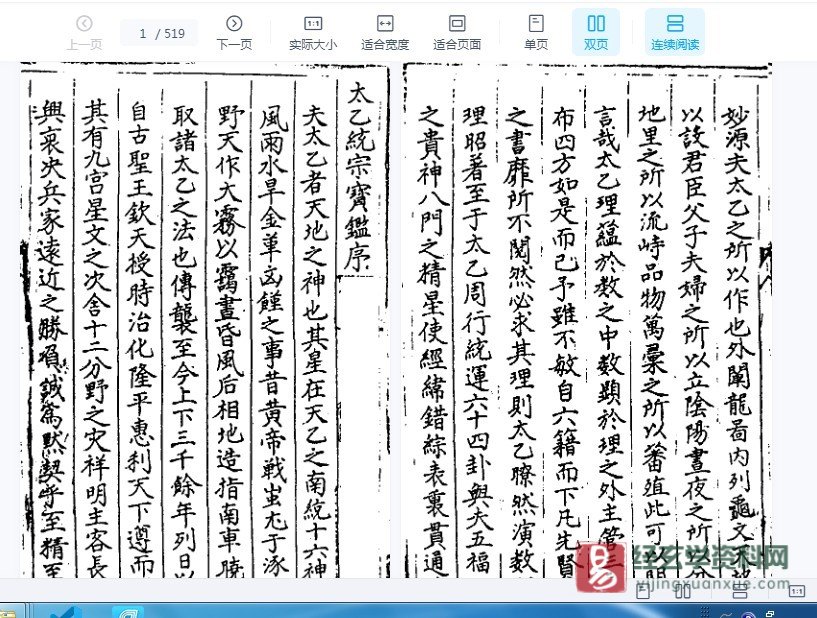 上一页 1 / 519 下一页 1:1 实际大小 适合宽度 适合页面 单页 双页 连续阅读
太乙統宗寶鑑序
夫太乙者天地之神也其星在天乙之南統十六神
風雨水旱金革凶饉之事昔黃帝戰蚩尤于涿
野天作大霧以靄晝昏風后相地造指南車曉
取諸太乙之法也傳襲至今上下三千餘年列日
自古聖王欽天授時治化隆平惠利天下遵而
其有九宮星文之次舍十二分野之灾祥明主客長
興衰决兵家遠近之勝負誠為默契乎至精至
妙源夫太乙之所以作也外闡龍啚内列龜文天
以設君臣父子夫婦之所以立陰陽晝夜之所以分
地里之所以流峙品物萬彙之所以蕃殖此可以
言哉太乙理蘊於数之中数顕於理之外主管三
布四方如是而已予雖不敏自六籍而下凡先賢
之書靡所不閱然必求其理則太乙瞭然演数
理昭著至于太乙周行統運六十四卦與夫五福
之貴神八門之精星使經緯錯綜表裏貫通
易 经玄学资料网
yijingxuanxue.com
1:1